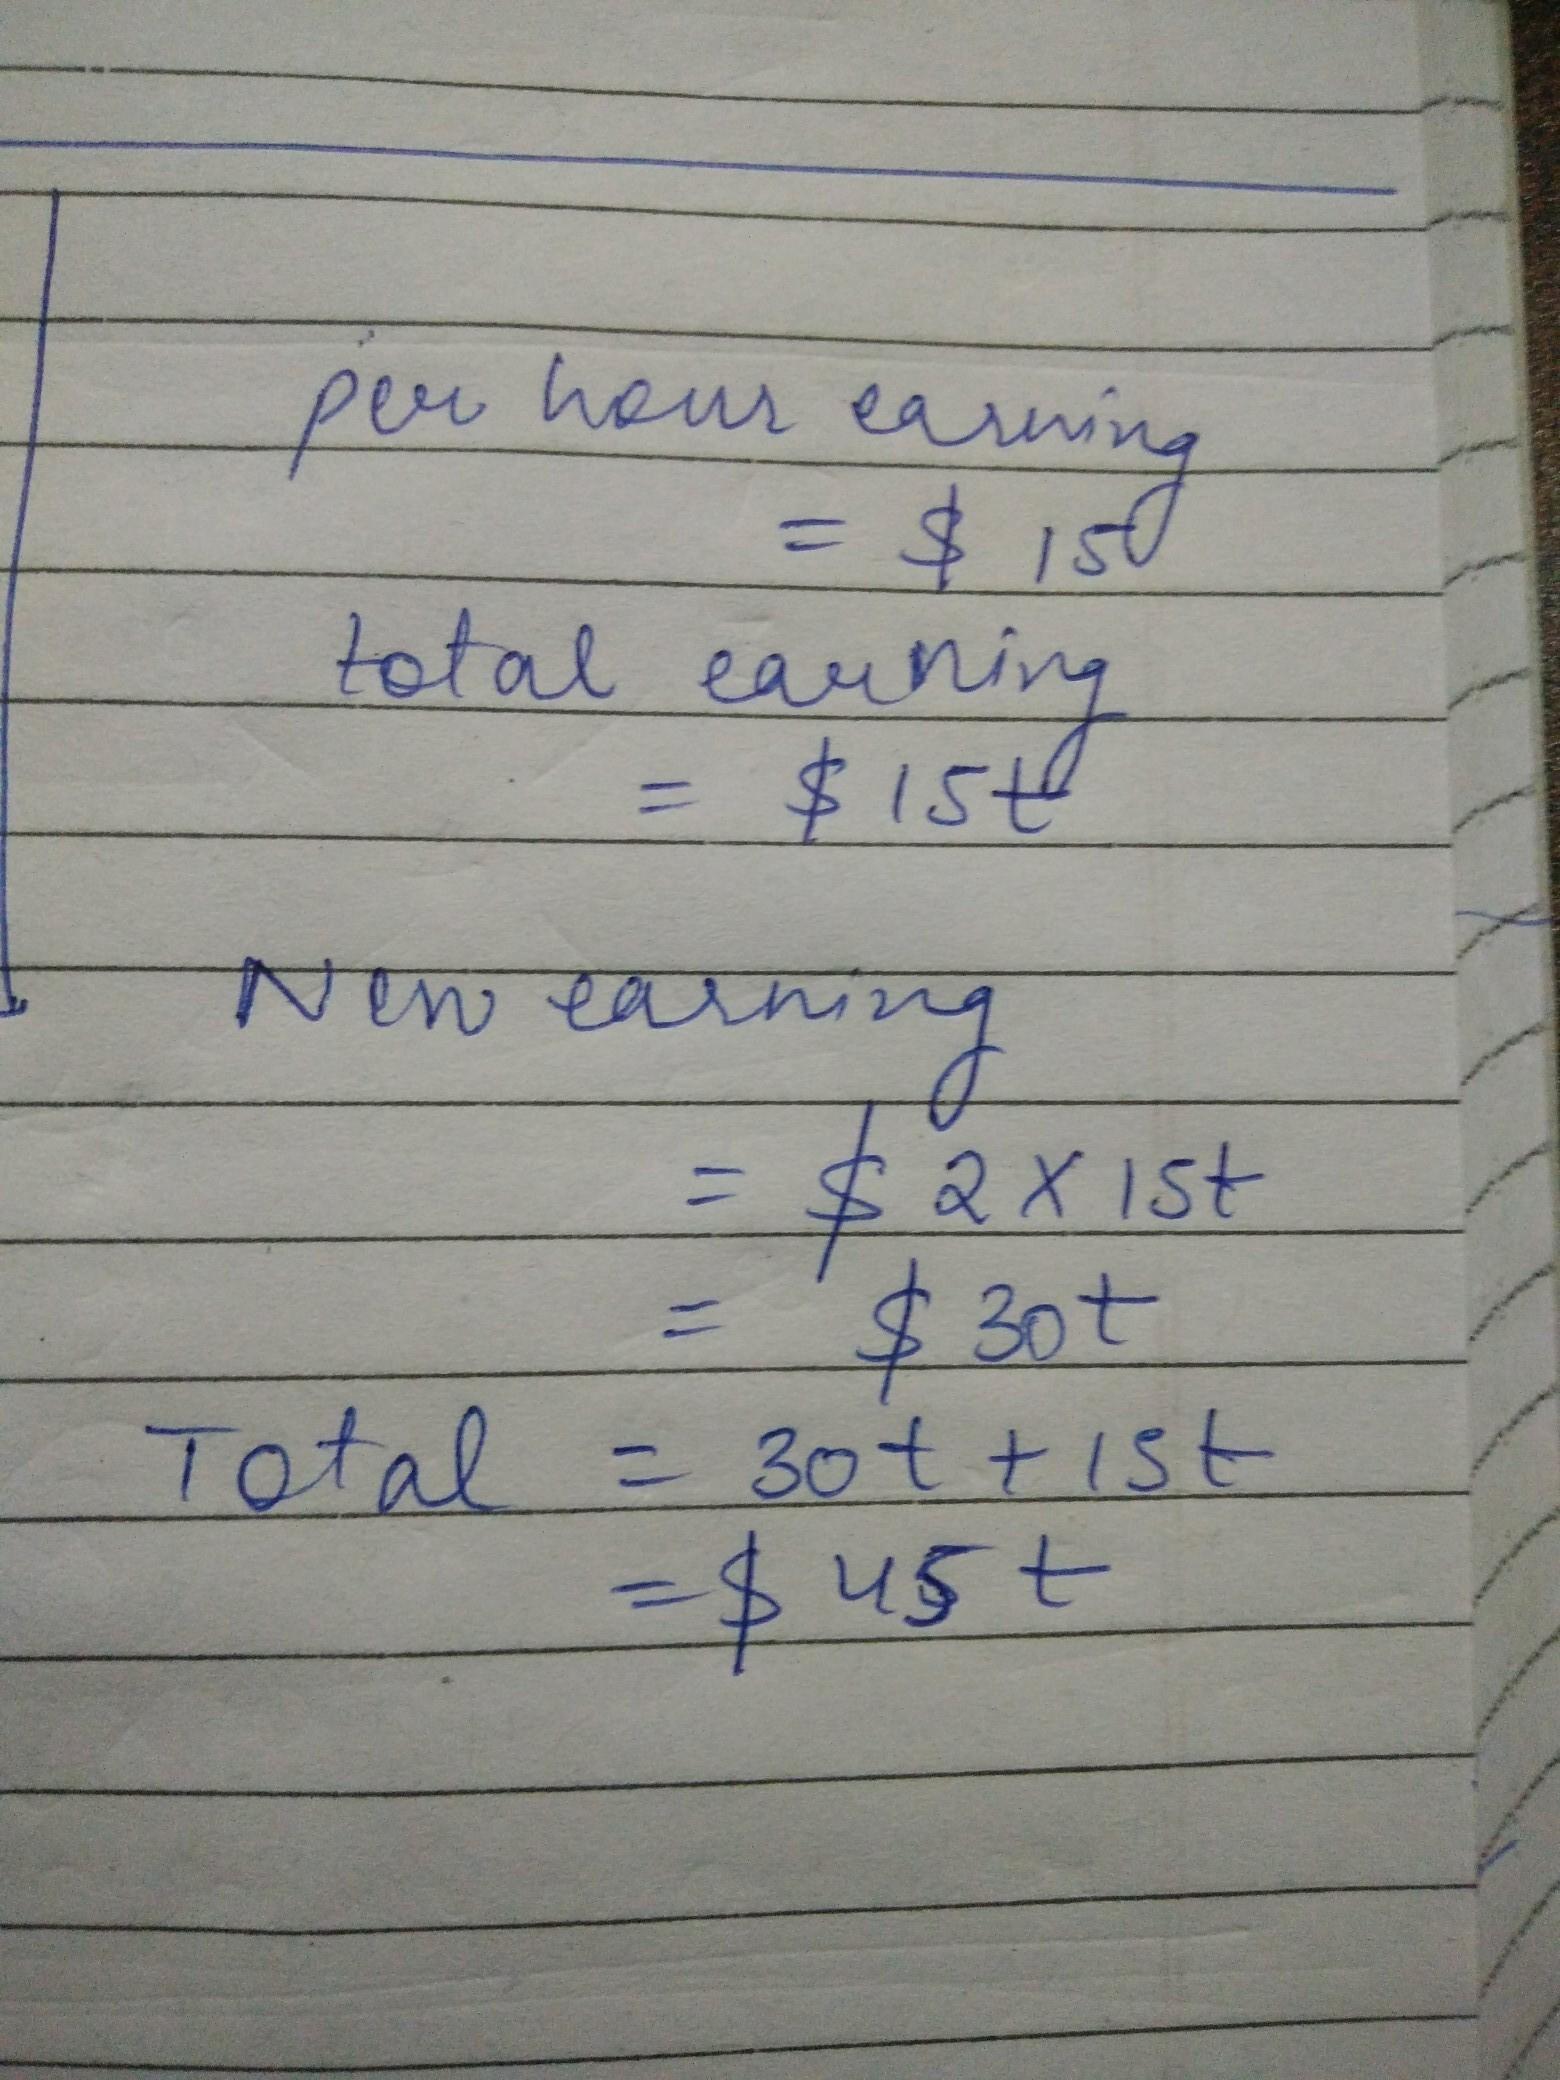 per hour earning
= $ 15
total earning
= $ 15t
New earning
= $ 2 X 15t
= $ 30t
Total = 30t + 15t
= $ 45 t